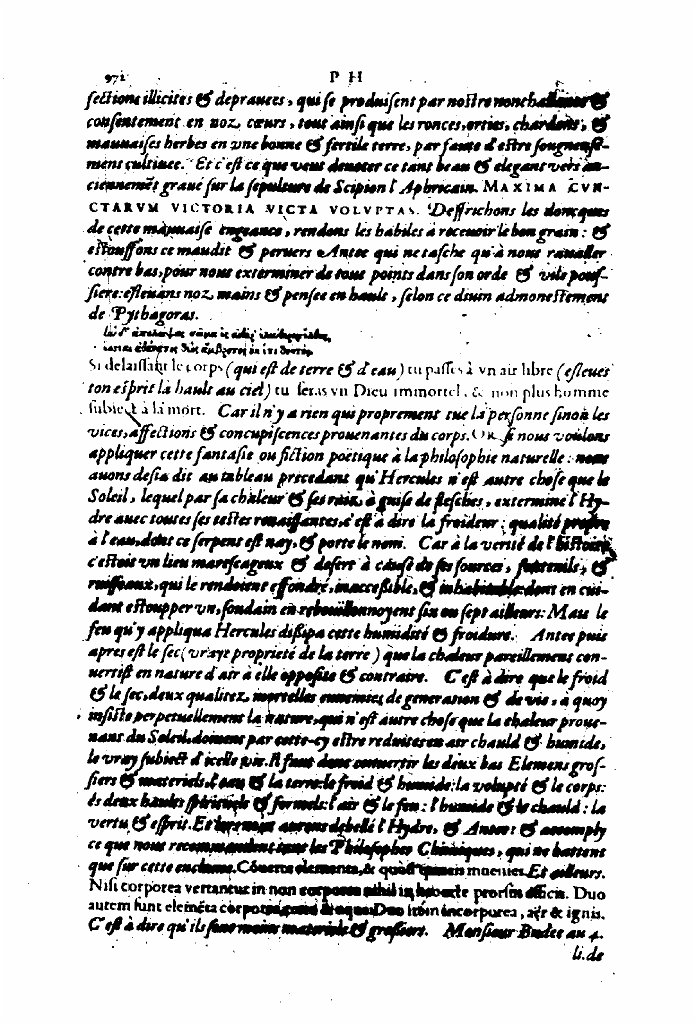 972 P H
fections illicites & deprauees, qui se produisent par nostre nonchallance &
consentement en noz cœurs, tout ainsi que les ronces, orties, chardons, &
mauuaises herbes en vne bonne & fertile terre, par faute d'estre songneuse-
ment cultiuee. Et c'est ce que veut denoter ce tant beau & elegant vers an-
ciennemēt graué sur la sepulture de Scipion l'Aphricain. MAXIMA CVN-
CTARVM VICTORIA VICTA VOLVPTAS. Deffrichons les doncques
de cette mauuaise engeance, rendons les habiles à receuoir le bon grain: &
estouffons ce maudit & peruers Antee qui ne tasche qu'à nous raualler
contre bas, pour nous exterminer de tous points dans son orde & vile pous-
siere: esleuans noz mains & pensee en hault, selon ce diuin admonestement
de Pythagoras.
Si delaissant le corps (qui est de terre & d'eau) tu passes à vn air libre (esleues
ton esprit là hault au ciel) tu seras vn Dieu immortel, & non plus homme
subiect à la mort. Car il n'y a rien qui proprement tue la personne sinon les
vices, affections & concupiscences prouenantes du corps. Ou si nous voulons
appliquer cette fantasie ou fiction poëtique à la philosophie naturelle: nous
auons desia dit au tableau precedant qu'Hercules n'est autre chose que le
Soleil, lequel par sa chaleur & ses raiz, à guise de flesches, extermine l'Hy-
dre auec toutes ses testes renaissantes, c'est à dire la froideur; qualité propre
à l'eau, dont ce serpent est nay, & porte le nom. Car à la verité de l'histoire
c'estoit vn lieu marescageux & desert à cause de ses sources, & 
ruisseaux, qui le rendoient effondré, inaccessible, & inhabitable: dont en cui-
dant estoupper vn, soudain en noyent six ou sept ailleurs: Mais le
feu qu'y appliqua Hercules dissipa cette humidité & froidure. Antee puis
apres est le sec (vraye proprieté de la terre) que la chaleur pareillement con-
uertist en nature d'air à elle opposite & contraire. C'est à dire que le froid
& le sec, deux qualitez mortelles ennemies de generation & de vie, à quoy
insiste perpetuellement la nature, qui n'est autre chose que la chaleur proue-
nant du Soleil, doiuent par cette-cy estre reduites en air chauld & humide,
le vray subiect d'icelle vie. Il faut donc conuertir les deux bas Elemens gros-
siers & materiels, l'eau & la terre: le froid & humide: la volupté & le corps:
és deux haults spirituels & formels: l'air & le feu: l'humide & le chauld: la
vertu & esprit. Et aurons debellé l'Hydre, & Antee: & accomply
ce que nous recommandent tous les Philosophes Chimiques, qui ne battent
que sur cette enclume. Cōuerte elementa, & quod quæris inuenies. Et ailleurs.
Nisi corporea vertantur in non corporea nihil in hac arte prorsus efficis. Duo
autem sunt elemēta corporea, terra & aqua. Duo itém incorporea, aër & ignis.
C'est à dire qu'ils sont moins materiels & grossiers. Monsieur Budee au 4.
li. de